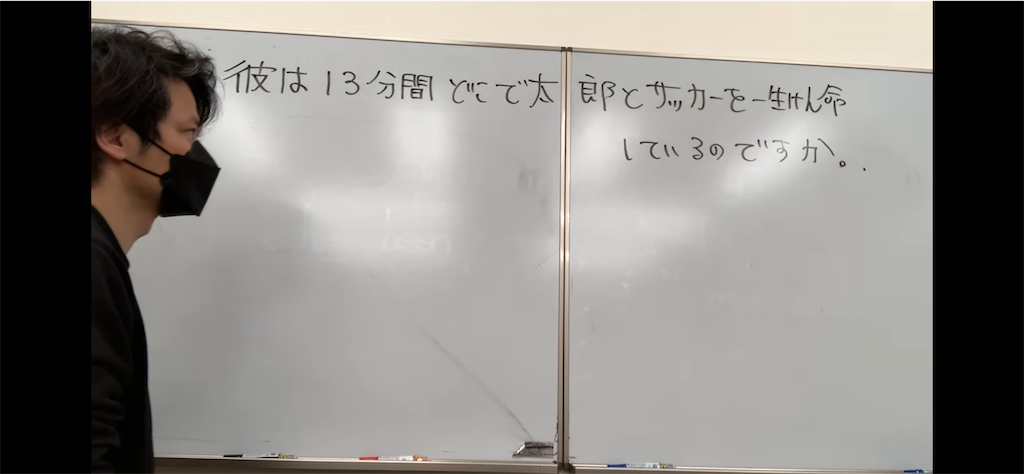 彼は13分間どこで太郎とサッカーを一生けん命
しているのですか。